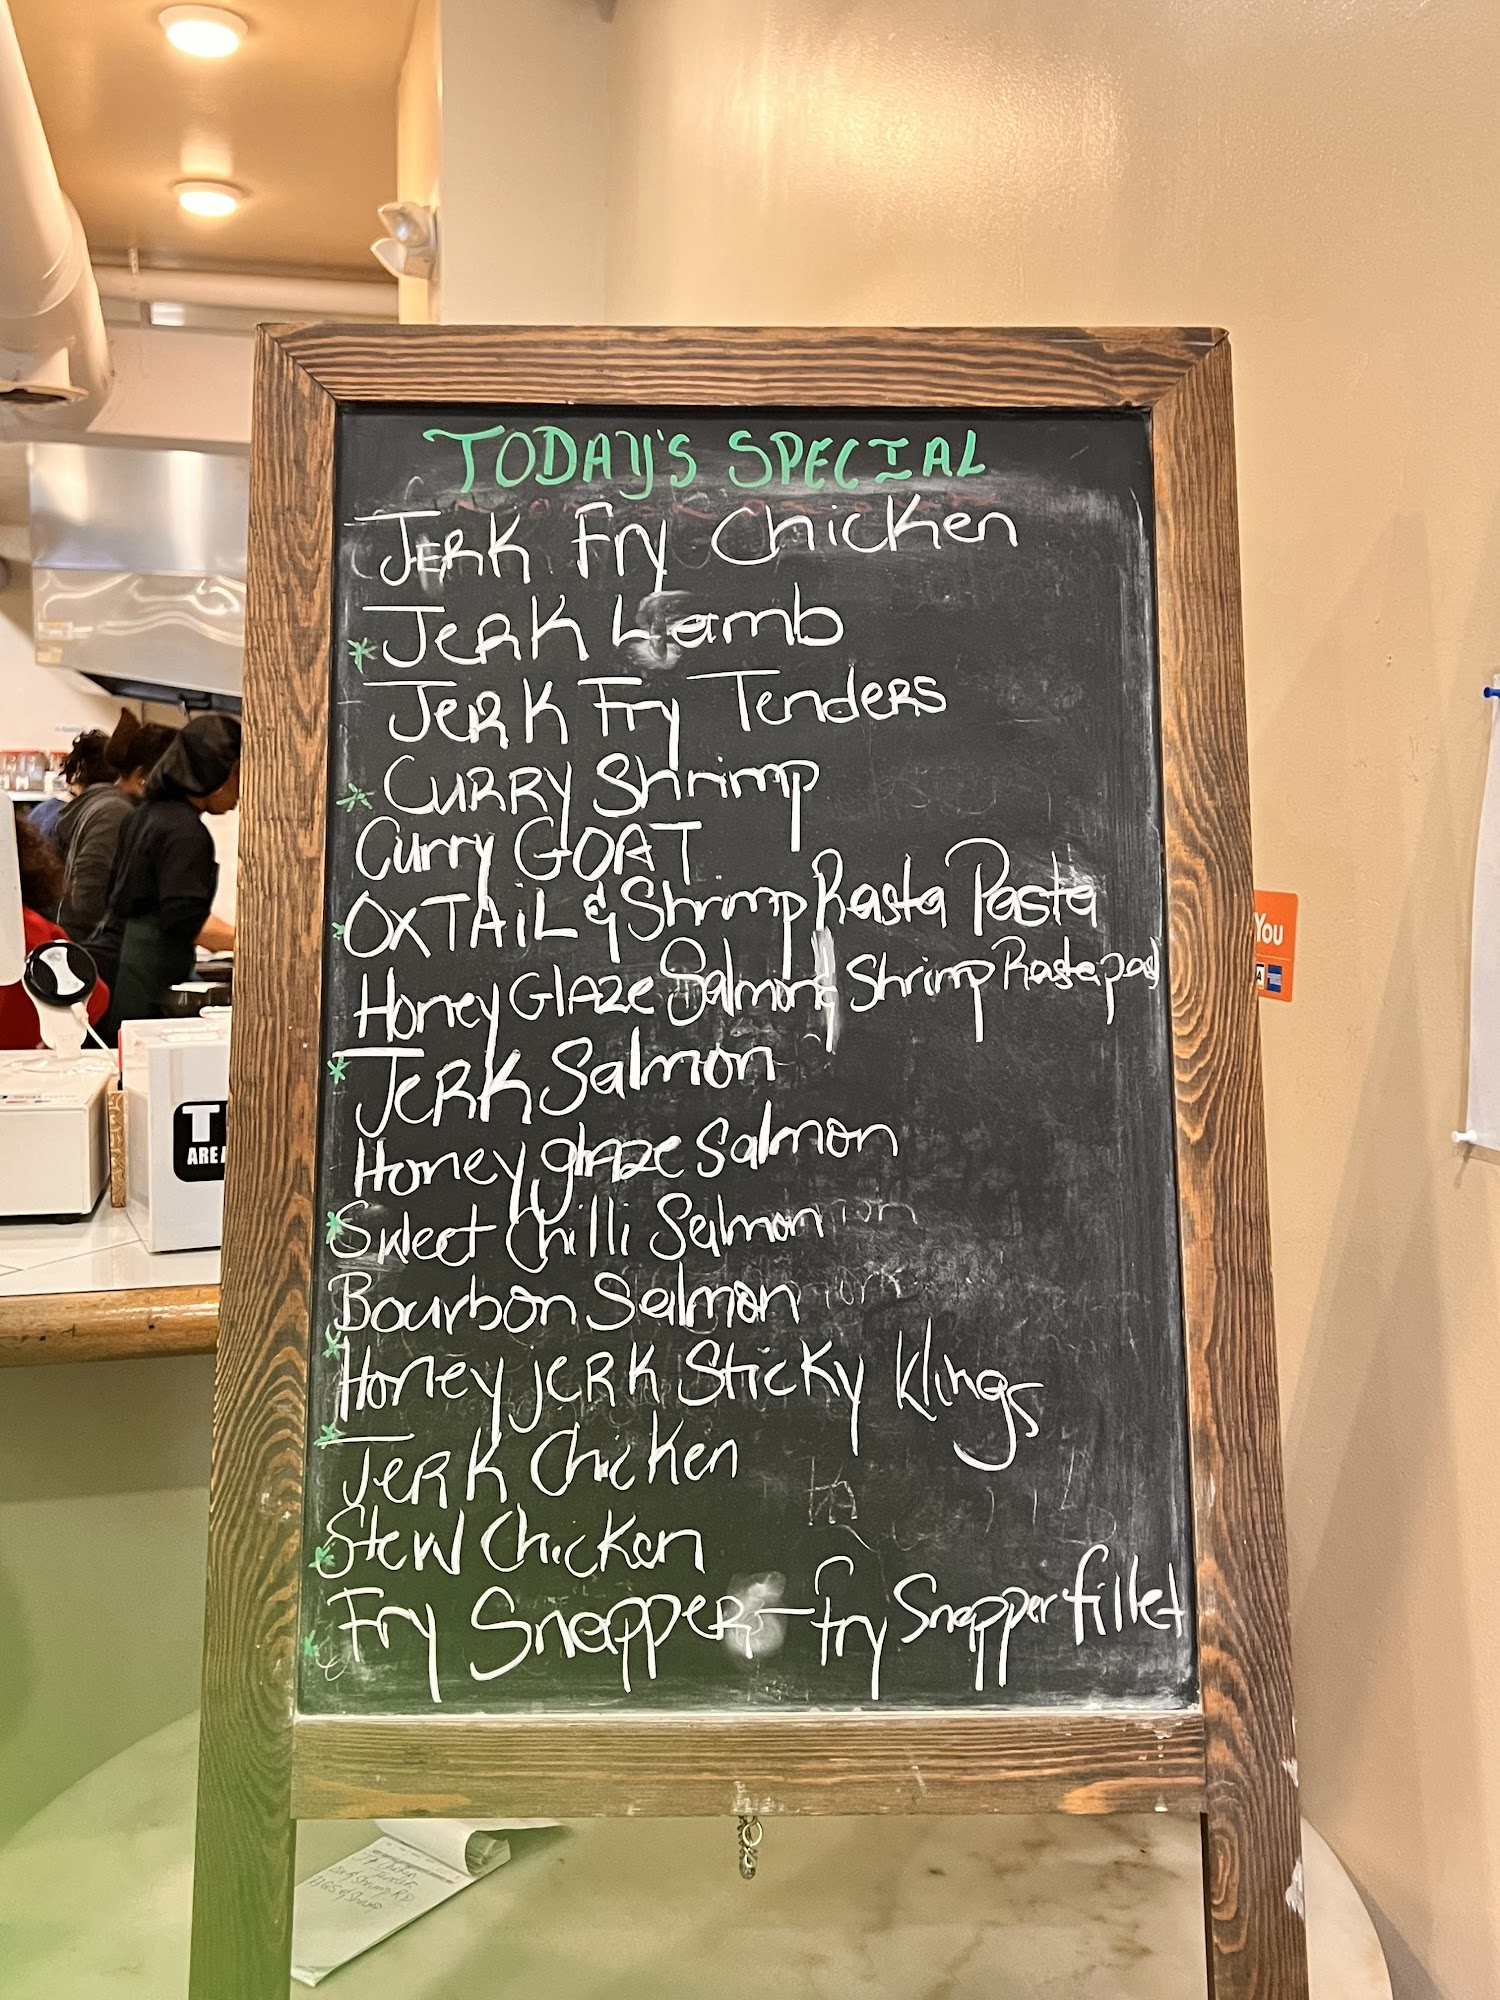 TODAY'S SPECIAL
JERK Fry Chicken
* JERK Lamb
JERK Fry Tenders
* CURRY Shrimp
Curry GOAT
* OXTAIL & Shrimp Rasta Pasta
Honey GLAZe Salmon & Shrimp Rasta pas
* JERK Salmon
Honey glaze Salmon
* Sweet Chilli Salmon
Bourbon Salmon
* Honey jeRK Sticky Klings
* JeRK Chicken
* Stew Chicken
* Fry SnappeR - fry Snapper fillet
You
T
AREA